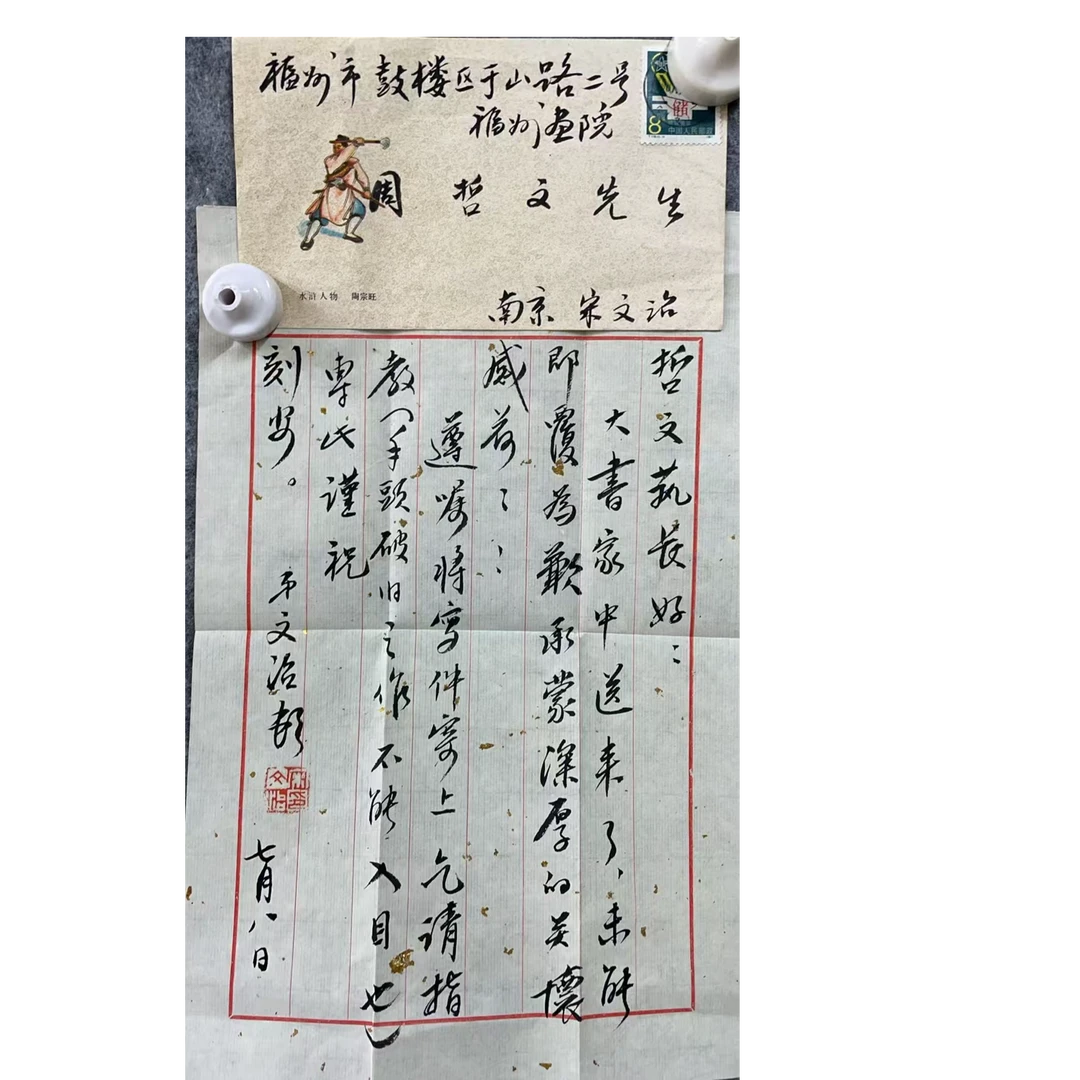 福州市鼓楼区于山路二号
福州画院
周哲文先生
水浒人物 陶宗旺
南京 宋文治
8
中国人民邮政
哲文执长好：
大書家中送来了，未能
即覆為歉承蒙深厚的关懷
感荷〻：
遵嘱将寫件寄上乞请指
教〇手頭破旧之作不能入目也
専此謹祝
刻安。
弟文治頓
宋文治印
七月八日